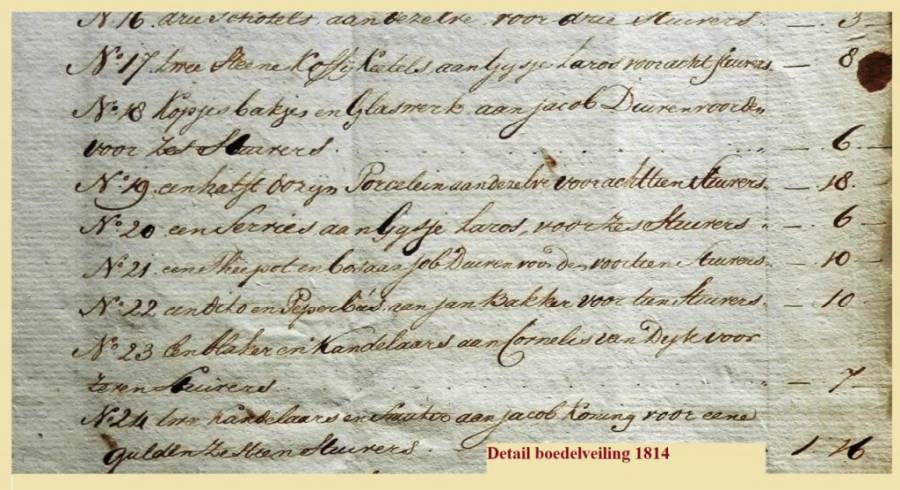 No 16 drie Schotels aan dezelve voor drie Stuivers. — 3
No 17 twee Steene Koffij Ketels aan Gijsje Laros voor acht Stuivers. — 8
No 18 Kopjes bakjes en Glaswerk aan Jacob Duurenvoorden
voor Zes Stuivers. — 6
No 19 een half dozijn Porcelein aan dezelve voor achttien Stuivers. — 18.
No 20 een Servies aan Gijsje Laros, voor Zes Stuivers — 6
No 21 een Theepot en aan Job Duurenvoorden voor tien Stuivers. — 10
No 22 een dito en Peperbus aan Jan Bakker voor tien Stuivers. — 10
No 23 Een Blaker en Kandelaars aan Cornelis van Dijk voor
zeven Stuivers — 7
No 24 twee Kandelaars en aan Jacob Koning voor eene
gulden Zestien Stuivers. 1. 16
Detail boedelveiling 1814